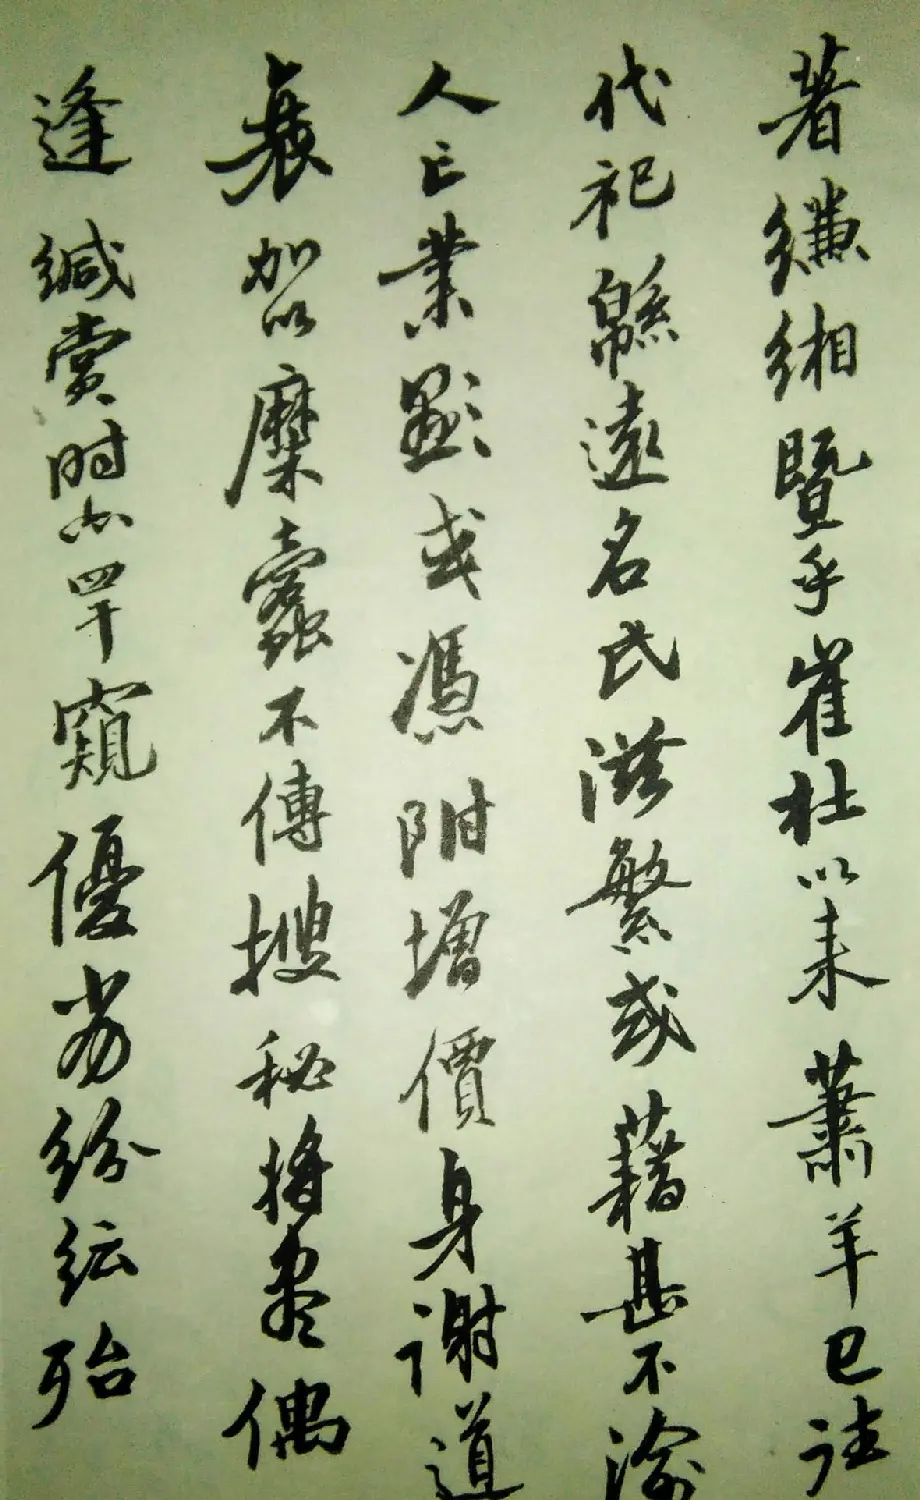 著縑緗暨乎崔杜以来蕭羊已往
代祀緜遠名氏滋繁或藉甚不渝
人亡業顯或憑附增價身謝道
衰加以糜蠹不傳搜秘將盡偶
逢緘賞時亦罕窺優劣紛紜殆